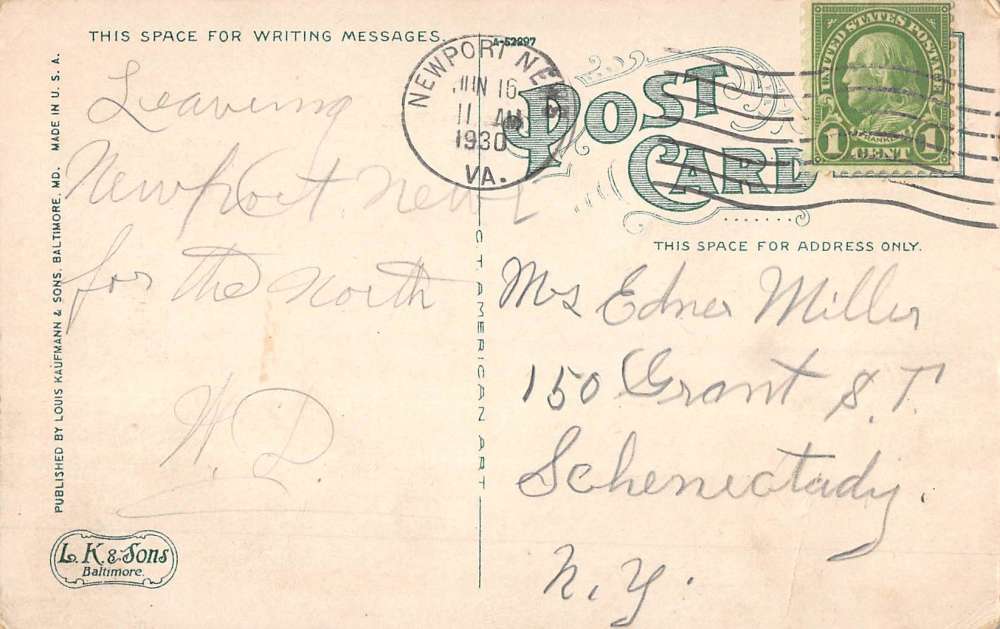 THIS SPACE FOR WRITING MESSAGES.
A-52297
PUBLISHED BY LOUIS KAUFMANN & SONS, BALTIMORE, MD. MADE IN U. S. A.
Leaving
Newport News
for the North
W. D.
L. K. & Sons
Baltimore.
C. T. AMERICAN ART
NEWPORT NEWS
JUN 16
11 AM
1930
VA.
POST
CARD
UNITED STATES POSTAGE
1 FRANKLIN 1
CENT
THIS SPACE FOR ADDRESS ONLY.
Mrs Edner Miller
150 Grant S.T.
Schenectady.
N.Y.